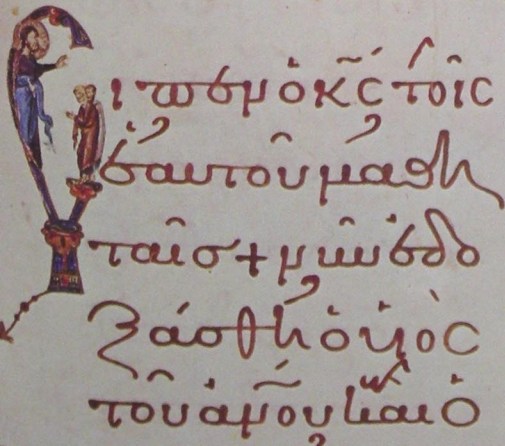 Εἶπεν ὁ κ̅ς̅ τοῖς
ἑαυτοῦ μαθη
ταῖς + νῦν ἐδο
ξάσθη ὁ υἱὸς
τοῦ ἀν̅ο̅υ̅ καὶ ὁ